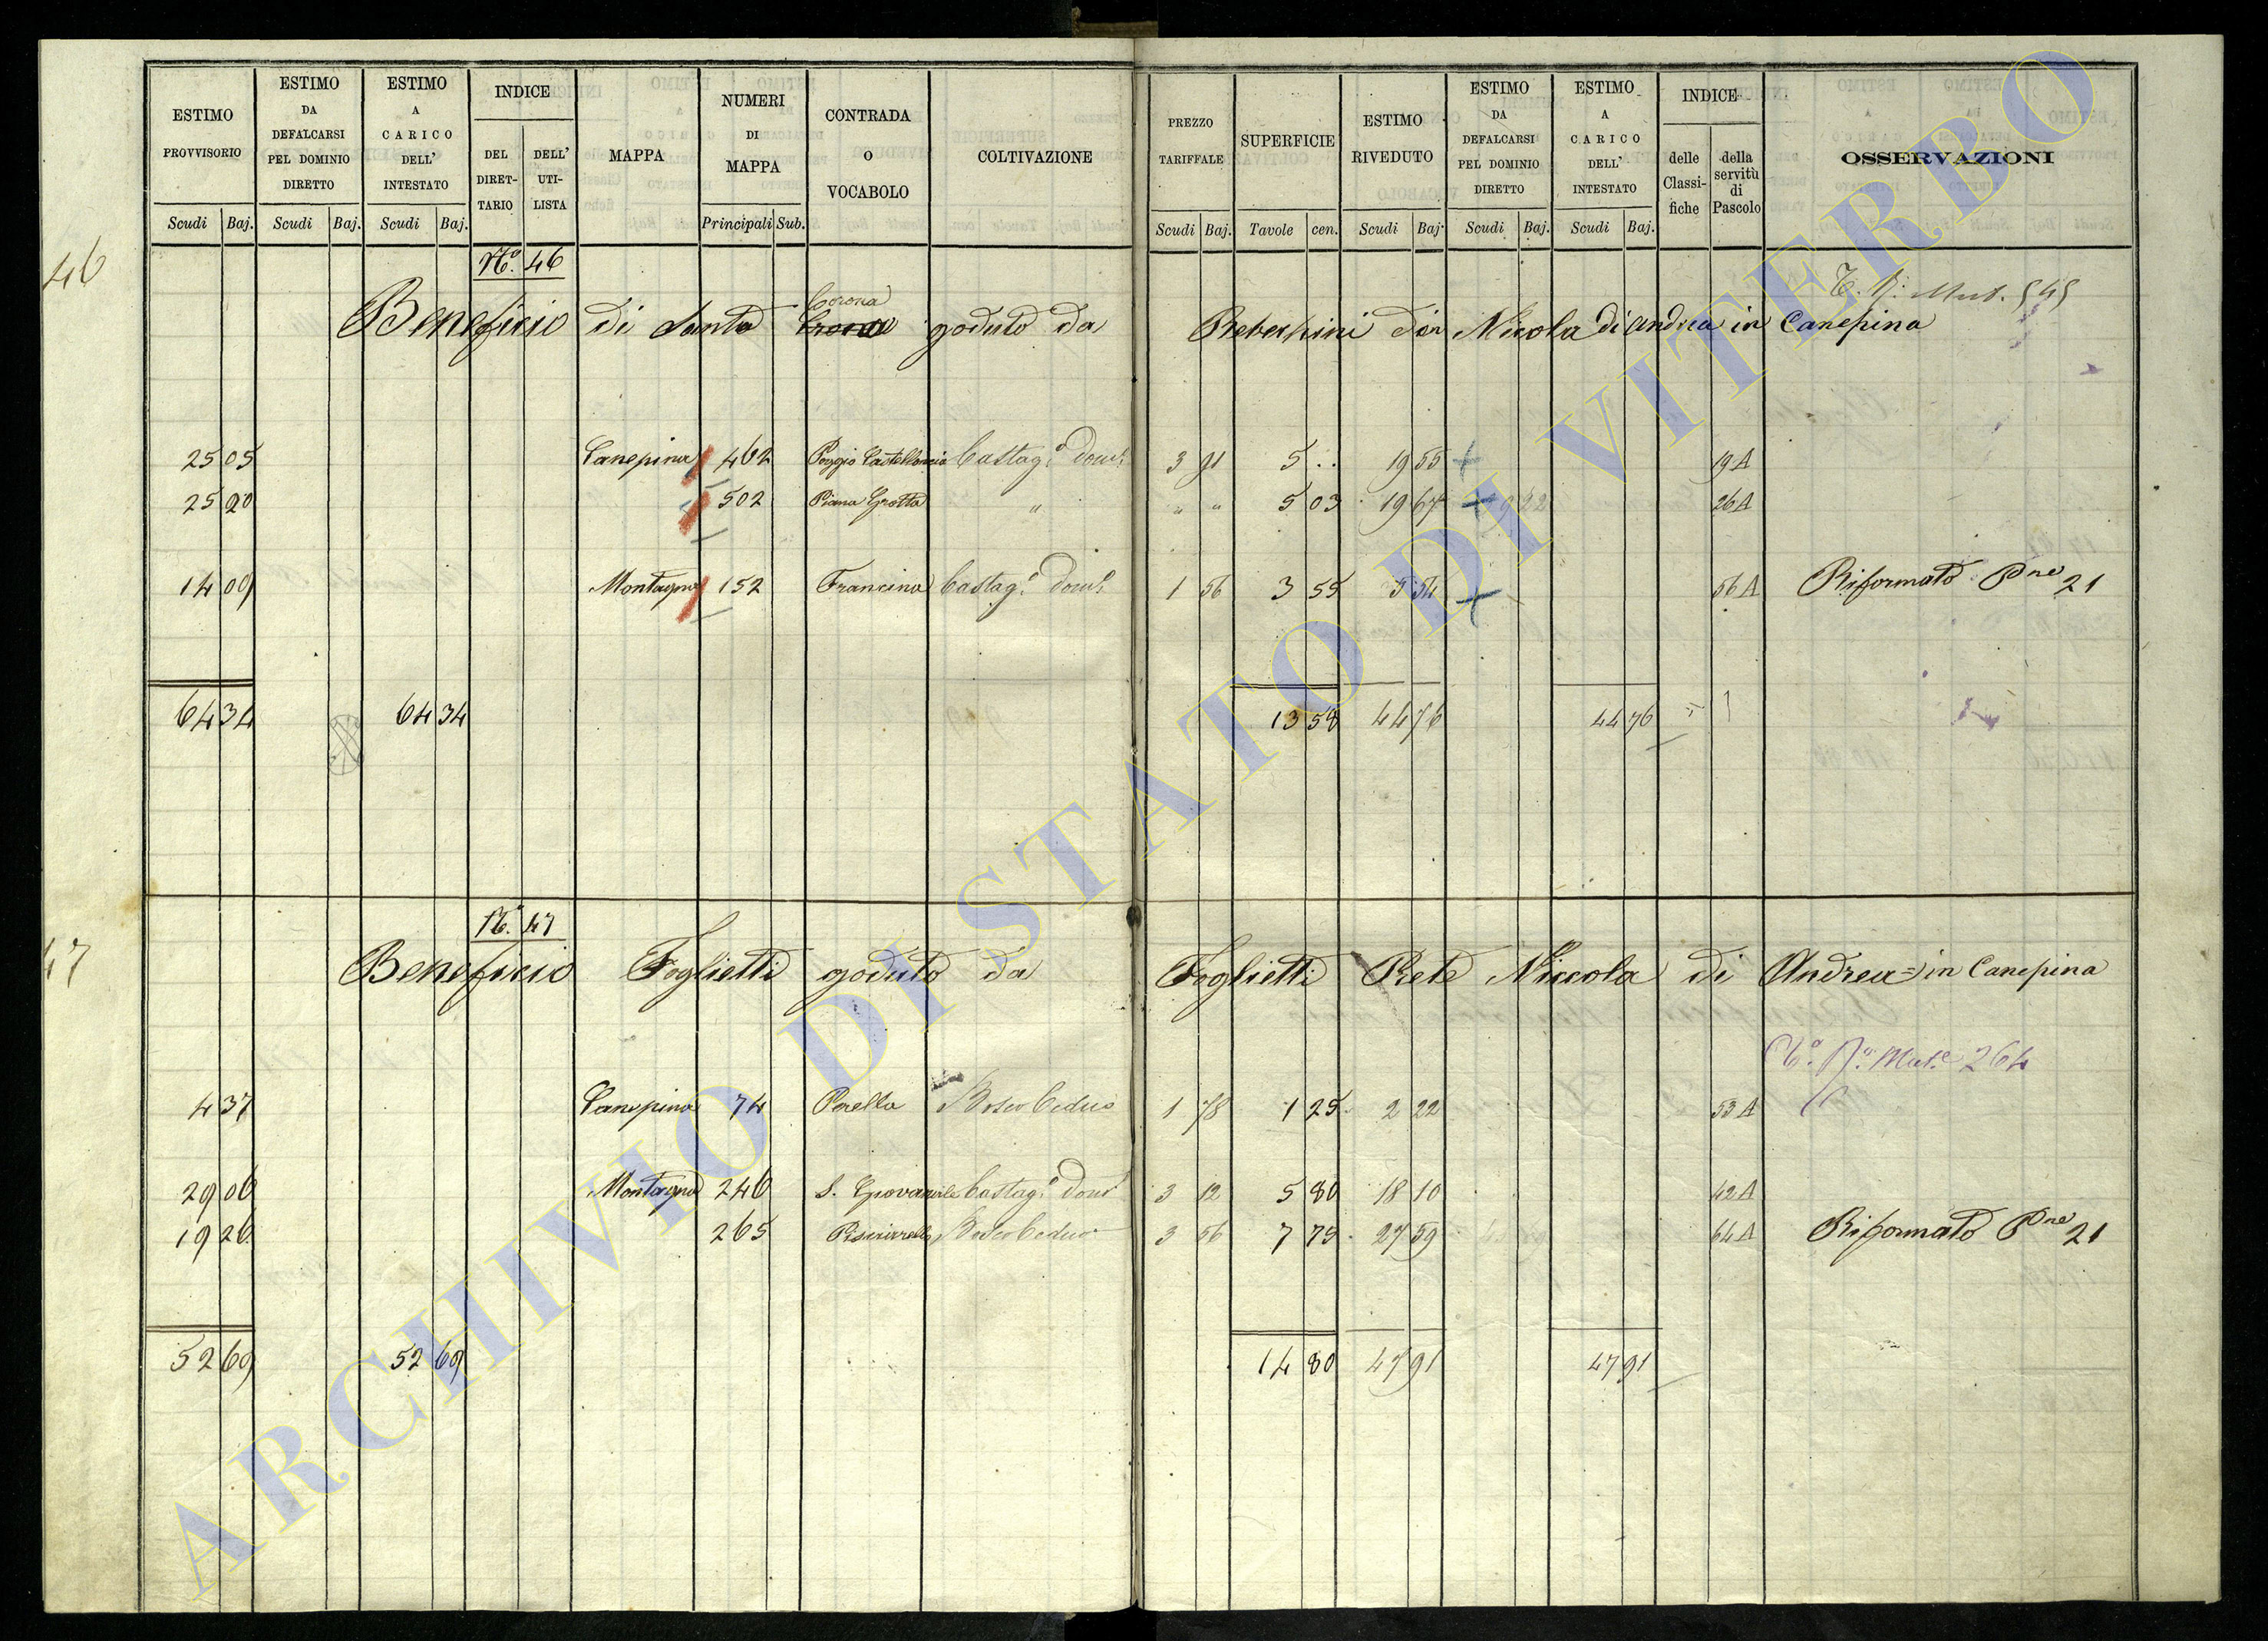 ESTIMO PROVVISORIO Scudi Baj.
ESTIMO DA DEFALCARSI PEL DOMINIO DIRETTO Scudi Baj.
ESTIMO A CARICO DELL' INTESTATO Scudi Baj.
INDICE DEL DIRETTARIO DELL' UTILISTA
MAPPA
NUMERI DI MAPPA Principali Sub.
CONTRADA O VOCABOLO
COLTIVAZIONE
PREZZO TARIFFALE Scudi Baj.
SUPERFICIE Tavole cen.
ESTIMO RIVEDUTO Scudi Baj.
ESTIMO DA DEFALCARSI PEL DOMINIO DIRETTO Scudi Baj.
ESTIMO A CARICO DELL' INTESTATO Scudi Baj.
INDICE delle Classifiche della servitù di Pascolo
OSSERVAZIONI
46
N.o 46
545
Corona
Beneficio di Santa goduto da don Niccola di Andrea in Canepina
25 05 Canepina 462 Poggio Castag.o Dom.o 3 91 5 .. 19 55 19 A
25 20 502 Piana Grotta " " " 5 03 19 67 26 A
14 09 Montagna 152 Francina Castag.o Dom.o 1 56 3 55 5 54 56 A Riformato P.ne 21
64 34 64 34 13 58 44 76 44 76
47
N.o 47
Beneficio Foglietti goduto da Foglietti Prete Niccola di Andrea = in Canepina
264
4 37 Canepina 74 Perella Bosco Ceduo 1 78 1 25 2 22 53 A
29 06 Montagna 246 S. Castag.o Dom.o 3 12 5 80 18 10 42 A
19 26 265 Bosco Ceduo 3 56 7 75 27 59 64 A Riformato P.ne 21
52 69 52 69 14 80 47 91 47 91
ARCHIVIO DI STATO DI VITERBO